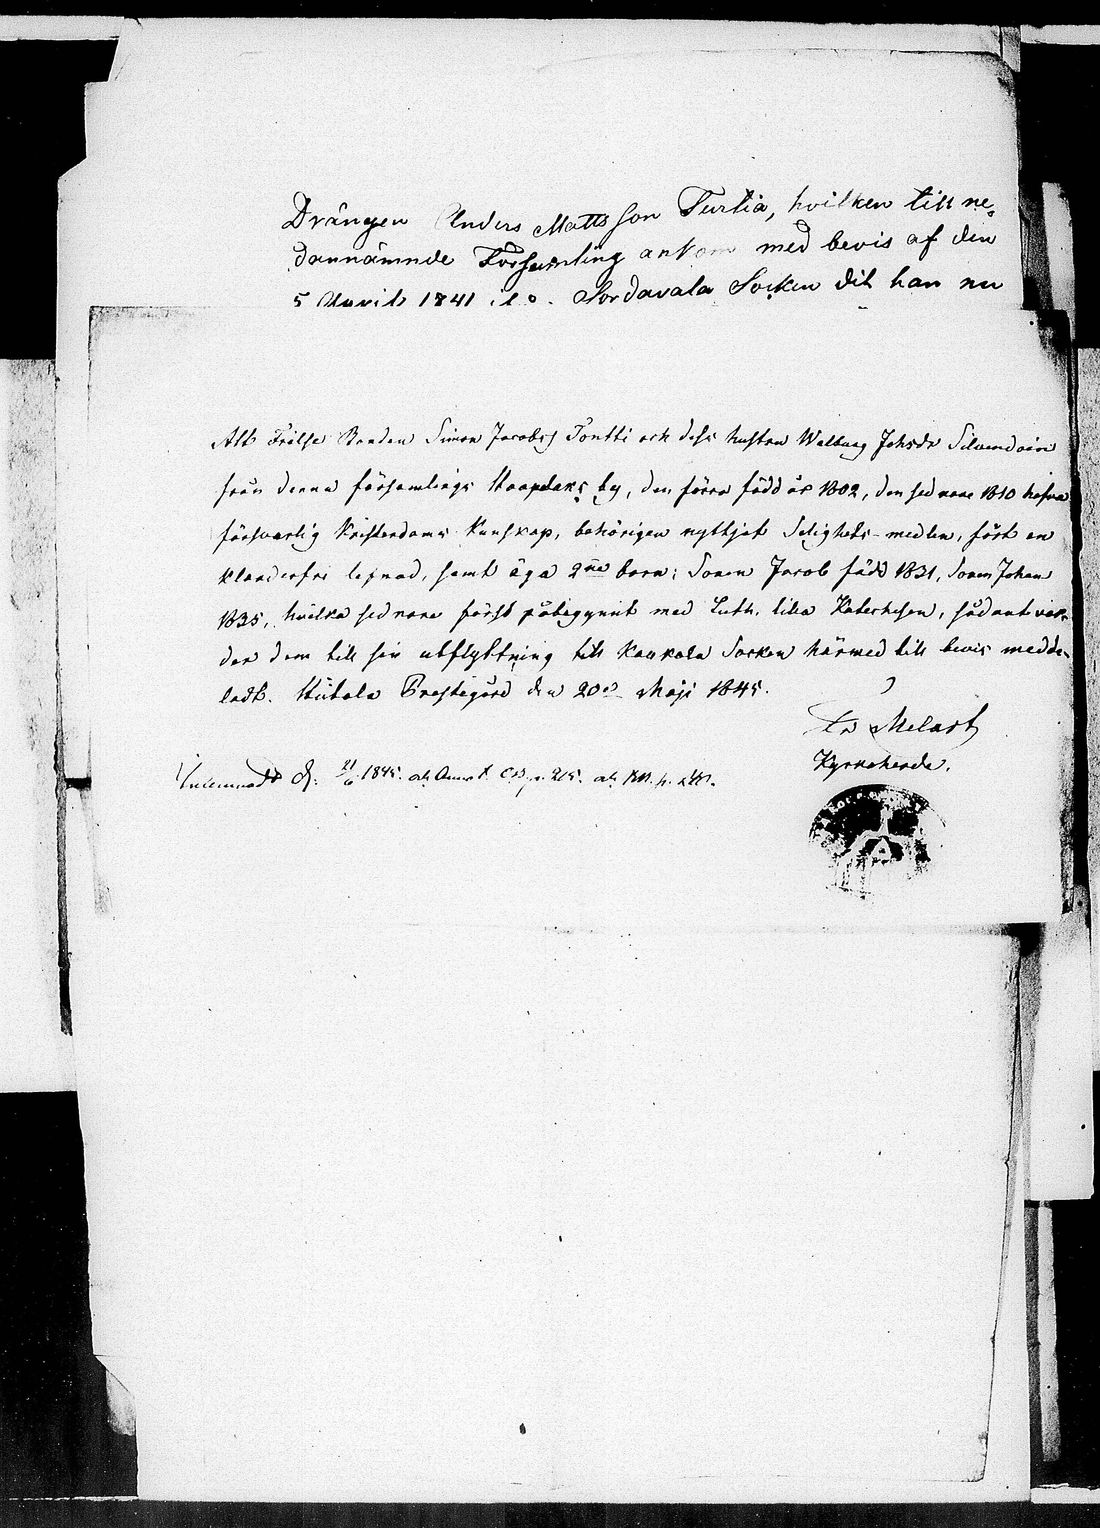 Drängen Anders Mattsson Turtia, hvilken till ne-
dannämnde Församling ankom med bevis af den
5 Aprils 1841 ifrån Sordavala Socken dit han nu
Att Frälse Bonden Simon Jacobss Tontti och dess hustru Walborg Johsdr Silvendoin
från denna församlings Haapalax by, den förra född år 1802, den sednare 1810 hafva
försvarlig Kristendoms Kunskap, behörigen nyttjat Salighets-medlen, fört en
klanderfri lefnad, samt äga 2ne barn: Sonen Jacob född 1831, Sonen Johan
1835, hvilka sednare först påbegynnt med Luth. lilla Katechesen, sådant var-
der dem till sin utflyttning till Kaukola Socken härmed till bevis medde-
ladt. Hiitola Prestegård den 20de Maji 1845.
Melart
Kyrkoherde.
d. 21/6 1845. p. 215.